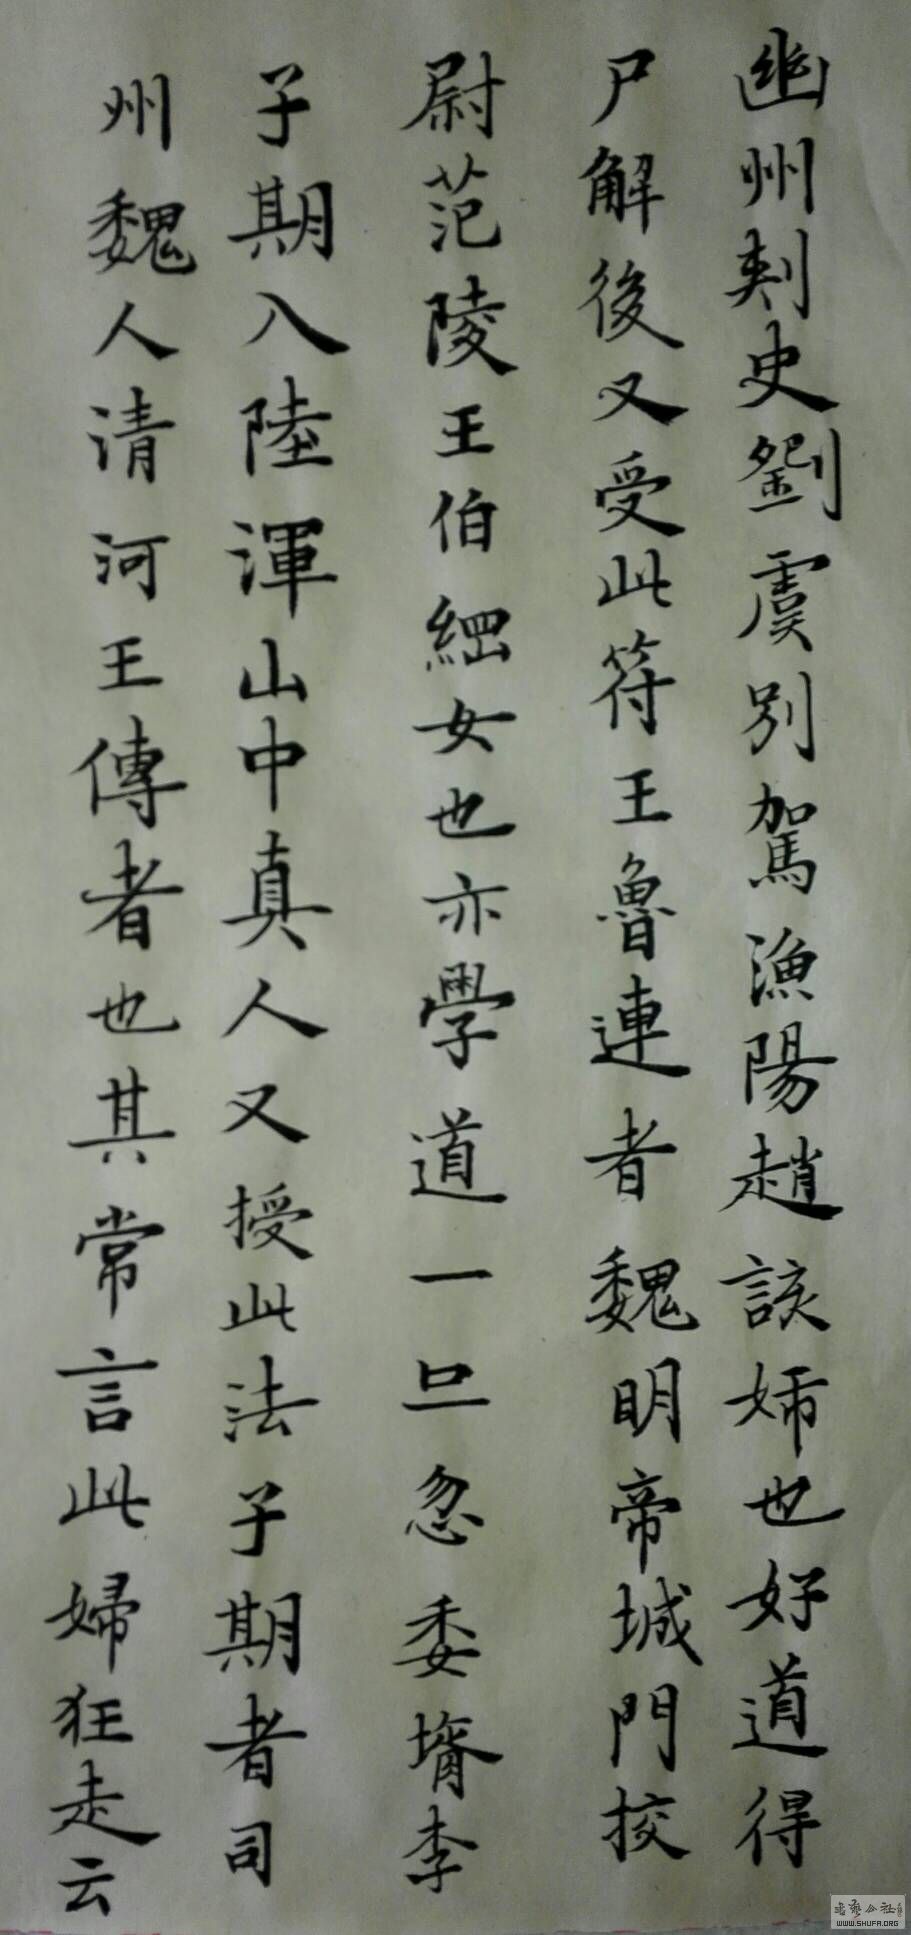 幽州刾史劉虞別駕漁陽趙該婦也好道得
尸解後又受此符王魯連者魏明帝城門挍
尉范陵王伯綱女也亦學道一旦忽委壻李
子期入陸渾山中真人又授此法子期者司
州魏人清河王傳者也其常言此婦狂走云
WWW.SHUFA.ORG